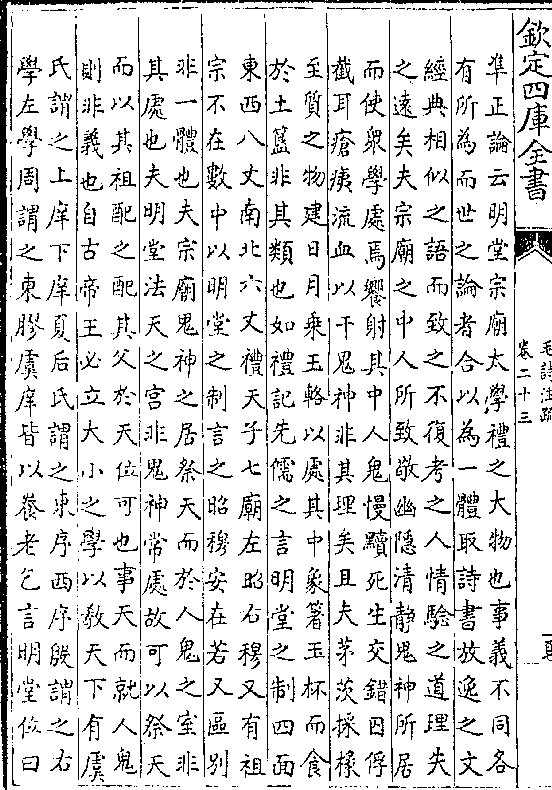 欽定四庫全書
毛詩注疏
卷二十三
準正論云明堂宗廟太學禮之大物也事義不同各
有所為而世之論者合以為一體取詩書放逸之文
經典相似之語而致之不復考之人情驗之道理失
之遠矣夫宗廟之中人所致敬幽隱清静鬼神所居
而使衆學處焉饗射其中人鬼慢黷死生交錯囚俘
截耳瘡痍流血以干鬼神非其理矣且夫茅茨採椽
至質之物建日月乗玉輅以處其中象箸玉杯而食
於土簋非其類也如禮記先儒之言明堂之制四面
東西八丈南北六丈禮天子七廟左昭右穆又有祖
宗不在數中以明堂之制言之昭穆安在若又區別
非一體也夫宗廟鬼神之居祭天而於人鬼之室非
其處也夫明堂法天之宫非鬼神常處故可以祭天
而以其祖配之配其父於天位可也事天而就人鬼
則非義也自古帝王必立大小之學以教天下有虞
氏謂之上庠下庠夏后氏謂之東序西序殷謂之右
學左學周謂之東膠虞庠皆以養老乞言明堂位曰